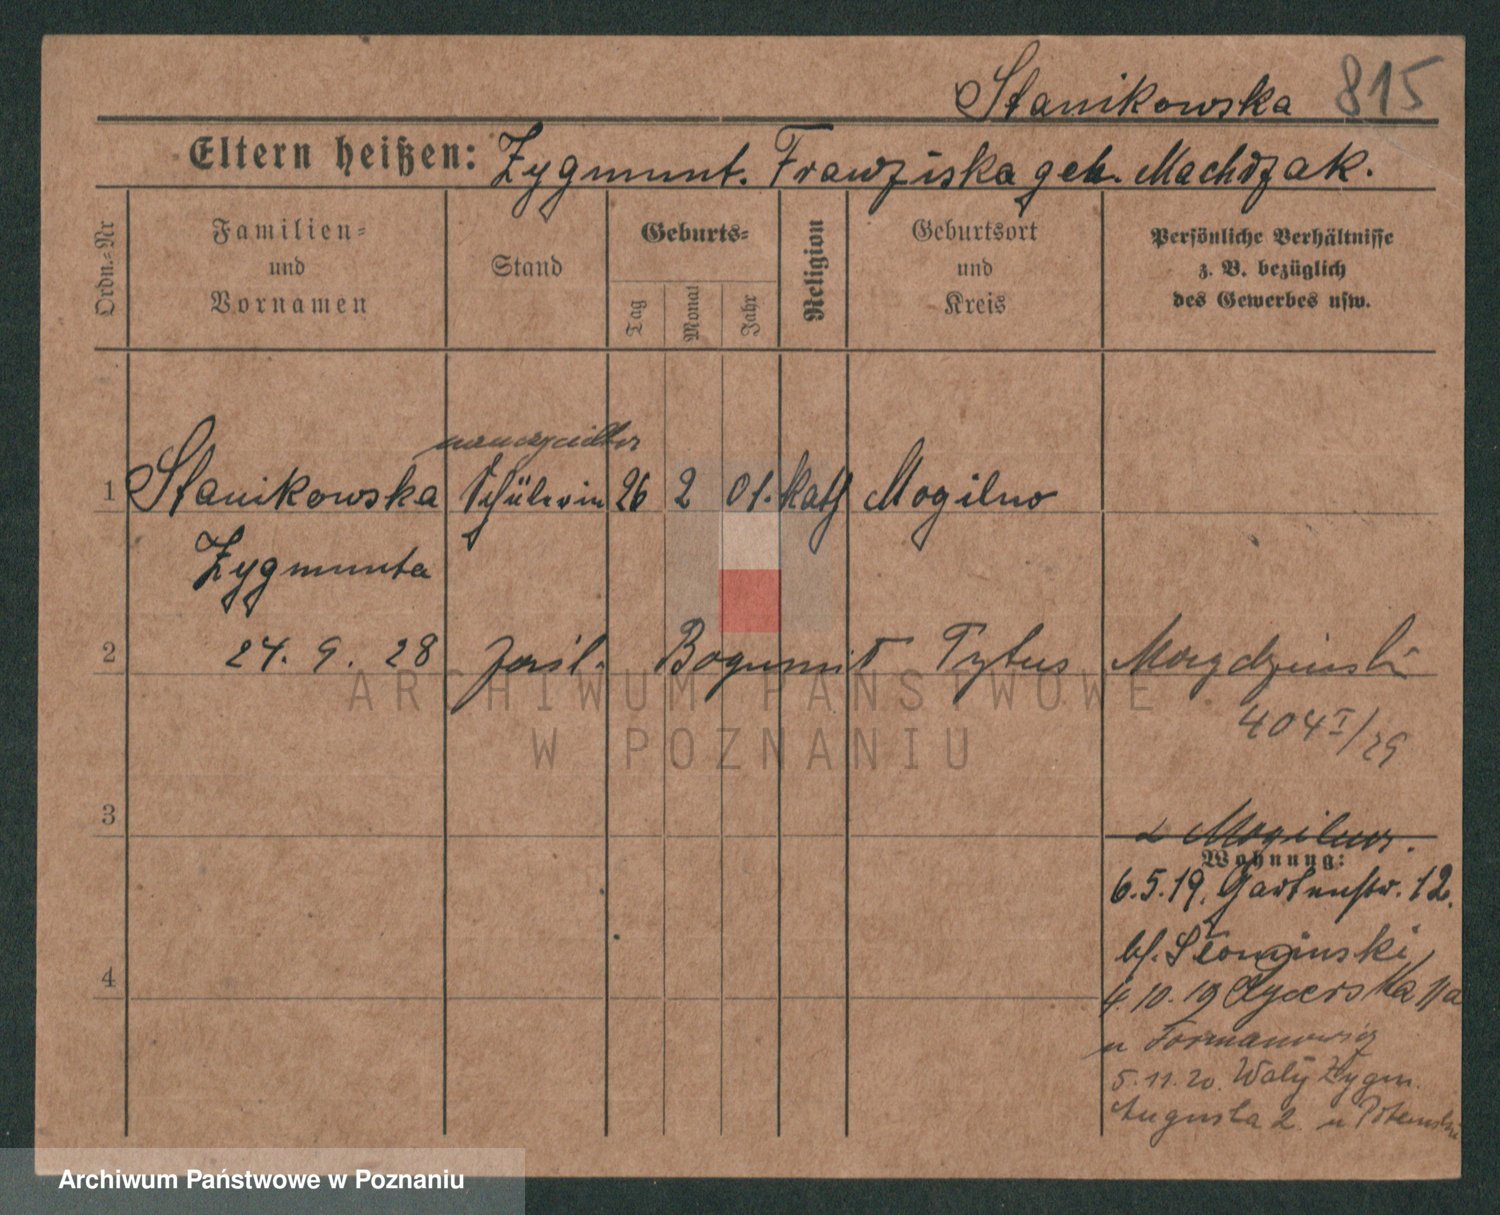 Stanikowska 815
Eltern heißen: Zygmunt. Franziska geb. Machdzak.
Ordn.-Nr
Familien-
und
Vornamen
Stand
Geburts-
Tag
Monat
Jahr
Religion
Geburtsort
und
Kreis
Persönliche Verhältnisse
z. B. bezüglich
des Gewerbes usw.
nauczycielka
1 Stanikowska Schülerin 26 2 01. kath Mogilno
Zygmunta
2 24. 9. 28 zaśl. Bogumił Tytus Mogdzinski
404 I/29
ARCHIWUM PAŃSTWOWE
W POZNANIU
3
z Mogilno.
Wohnung:
6.5.19. Gartenstr. 12.
bf. Słominski
4
4.10.19 11a
u Formanowicz
5.11.20. Wały Zygm.
Augusta 2. u
Archiwum Państwowe w Poznaniu